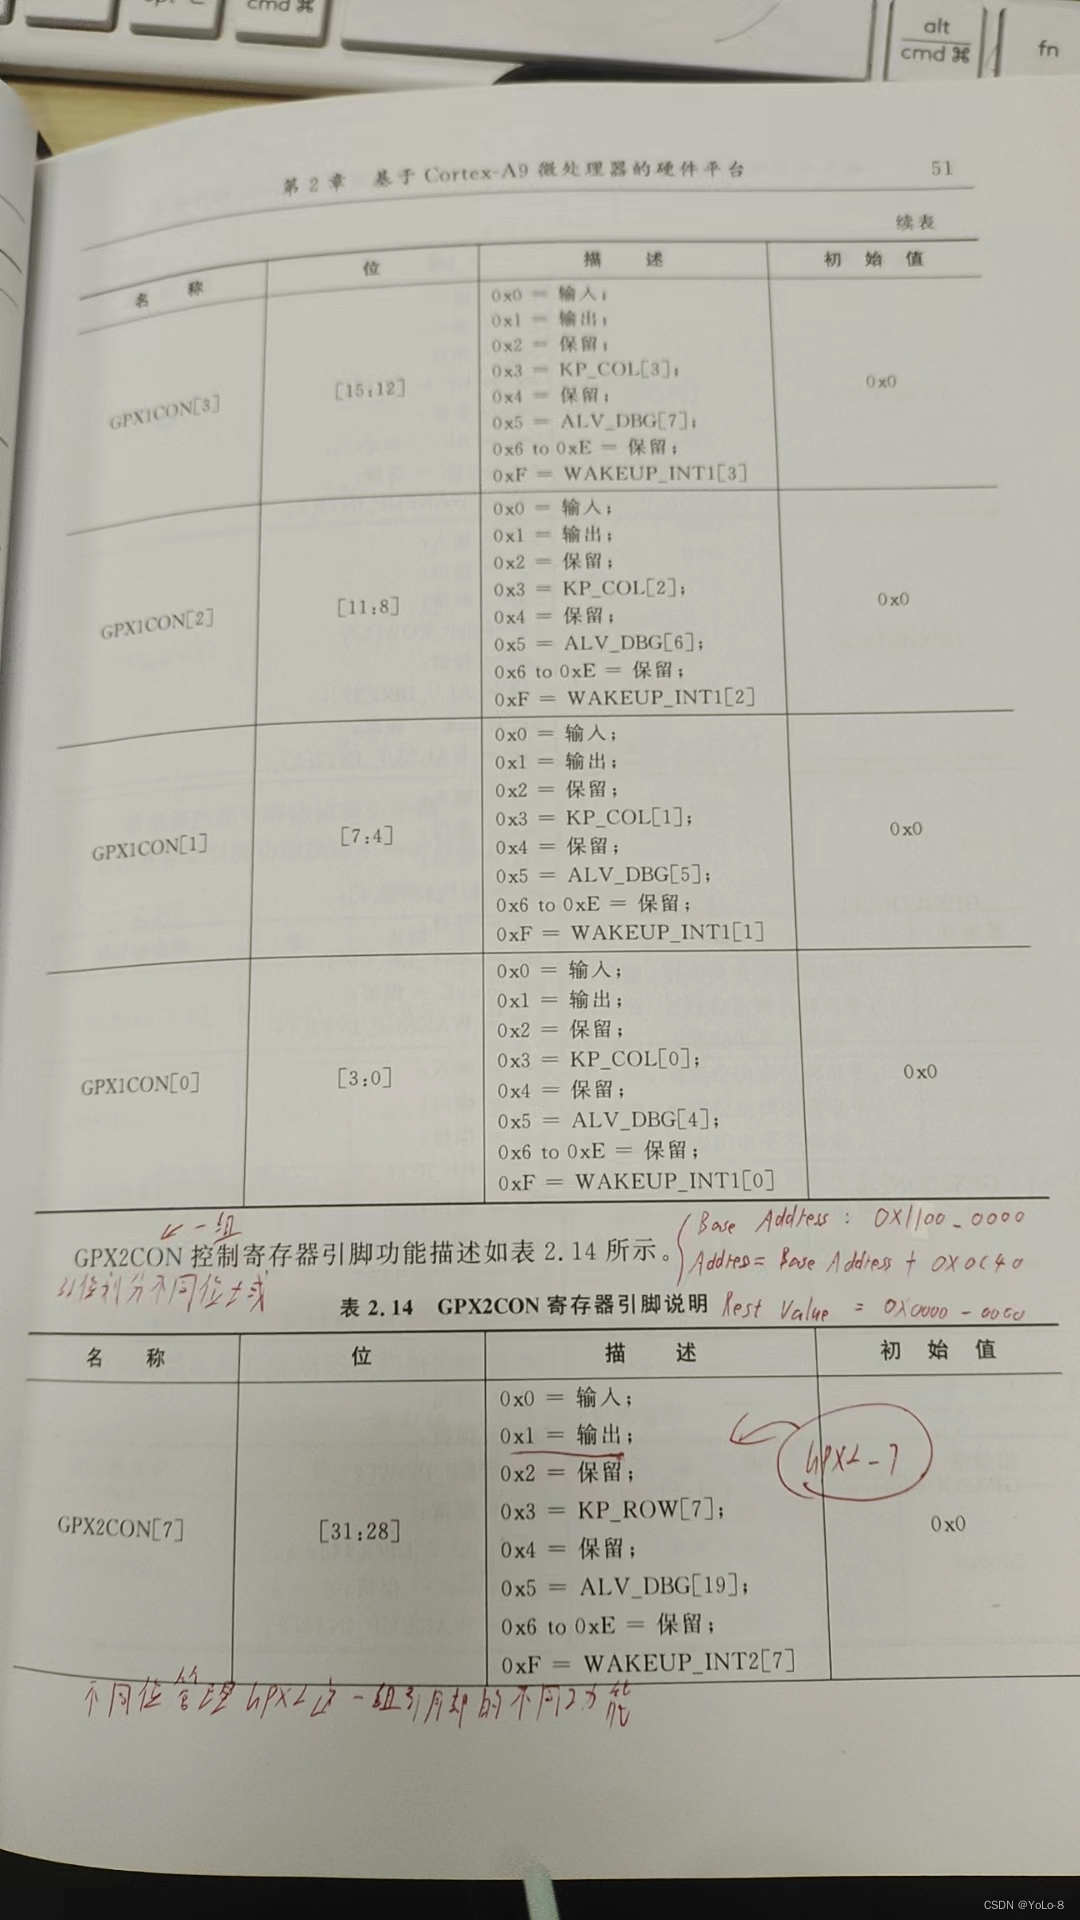 cmd ⌘
alt
cmd ⌘
fn
第 2 章 基于 Cortex-A9 微处理器的硬件平台 51
续表
名 称 位 描 述 初 始 值
GPX1CON[3] [15:12] 0x0
0x0 = 输入;
0x1 = 输出;
0x2 = 保留;
0x3 = KP_COL[3];
0x4 = 保留;
0x5 = ALV_DBG[7];
0x6 to 0xE = 保留;
0xF = WAKEUP_INT1[3]
GPX1CON[2] [11:8] 0x0
0x0 = 输入;
0x1 = 输出;
0x2 = 保留;
0x3 = KP_COL[2];
0x4 = 保留;
0x5 = ALV_DBG[6];
0x6 to 0xE = 保留;
0xF = WAKEUP_INT1[2]
GPX1CON[1] [7:4] 0x0
0x0 = 输入;
0x1 = 输出;
0x2 = 保留;
0x3 = KP_COL[1];
0x4 = 保留;
0x5 = ALV_DBG[5];
0x6 to 0xE = 保留;
0xF = WAKEUP_INT1[1]
GPX1CON[0] [3:0] 0x0
0x0 = 输入;
0x1 = 输出;
0x2 = 保留;
0x3 = KP_COL[0];
0x4 = 保留;
0x5 = ALV_DBG[4];
0x6 to 0xE = 保留;
0xF = WAKEUP_INT1[0]
一组
Base Address : 0X1100_0000
GPX2CON 控制寄存器引脚功能描述如表 2.14 所示。
Addres = Base Address + 0X0C40
划分不同位
表 2.14 GPX2CON 寄存器引脚说明
Rest Value = 0X0000-0000
名 称 位 描 述 初 始 值
GPX2CON[7] [31:28] 0x0
0x0 = 输入;
0x1 = 输出;
0x2 = 保留;
0x3 = KP_ROW[7];
0x4 = 保留;
0x5 = ALV_DBG[19];
0x6 to 0xE = 保留;
0xF = WAKEUP_INT2[7]
GPX2-7
不同位管理GPX2这一组引脚的不同功能
CSDN @YoLo-8